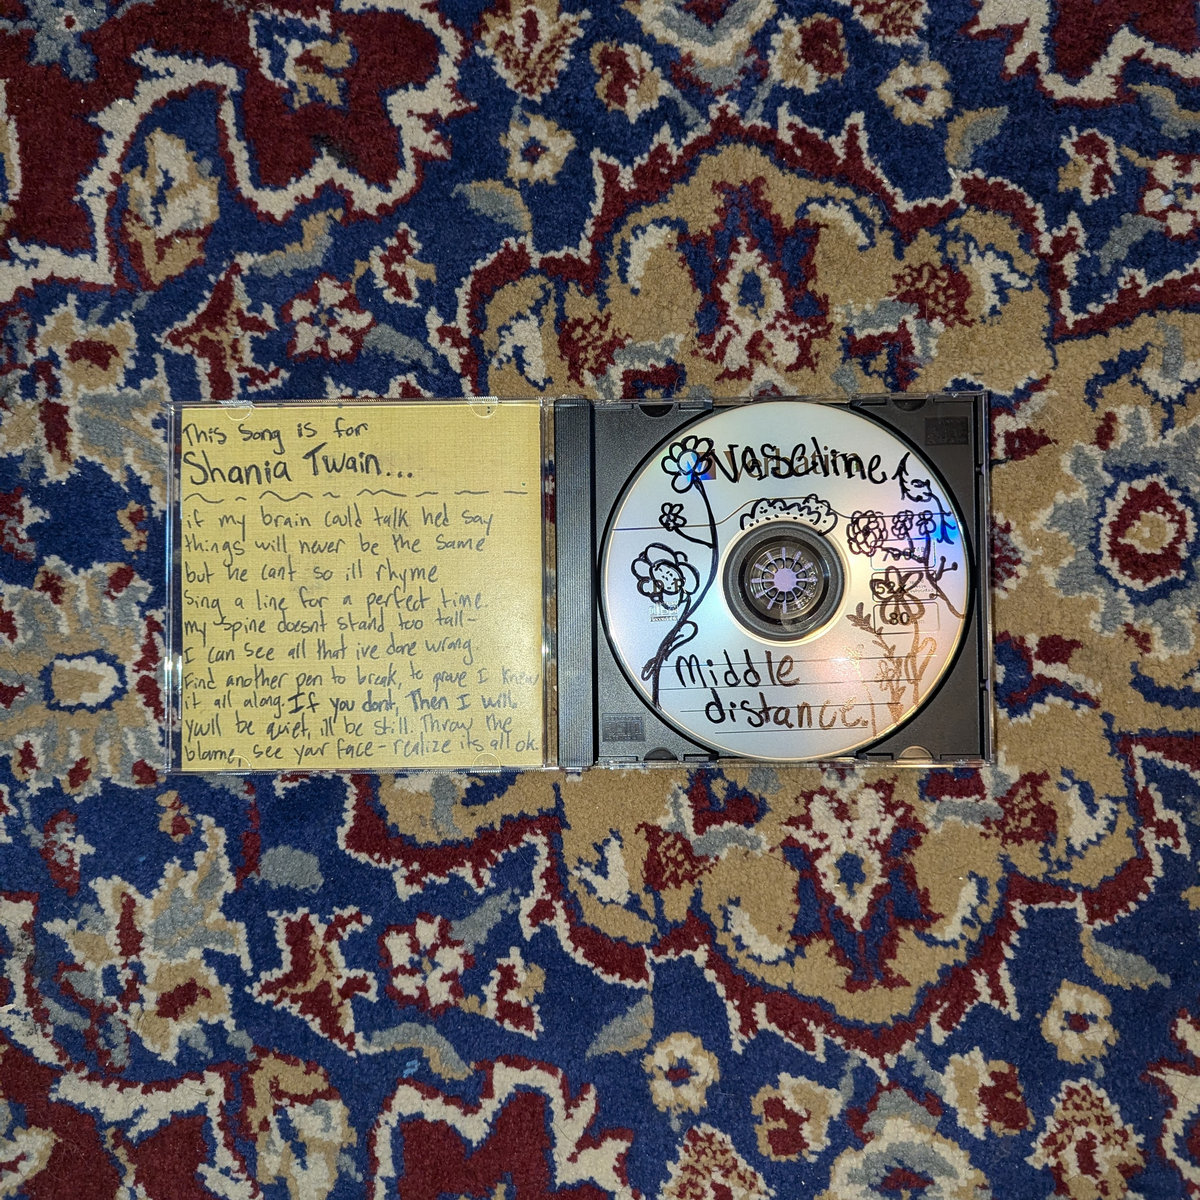 This song is for
Shania Twain...
if my brain could talk hed say
things will never be the same
but he cant so ill rhyme
Sing a line for a perfect time.
my spine doesnt stand too tall-
I can see all that ive done wrong.
Find another pen to break, to prove I knew
it all along. If you dont, Then I will.
youll be quiet, ill be still. Throw the
blame, see your face - realize its all ok.
52x
80
Middle
distance.